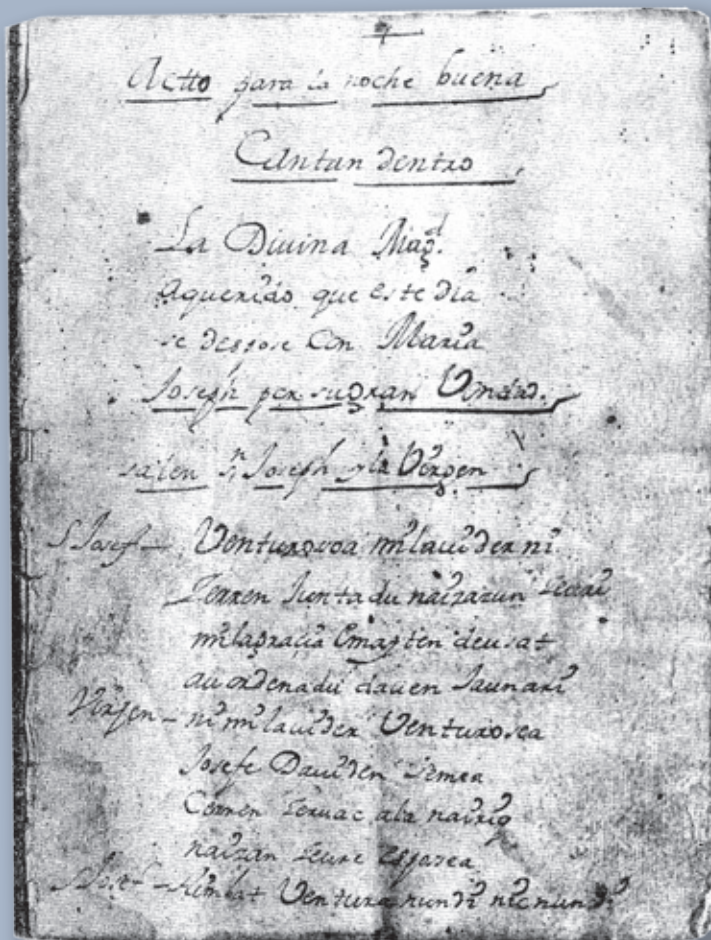 Actto para la noche buena
Cantan dentro
La Divina Magd.
a querido que este dia
se despose con Maria
Joseph por su gran
salen Sn. Joseph y la Vergen
S Josef - Venturosoa mila vider ni
Cerren Juntadu naizazun
mila gracia Emaften deusat
au ordenadu dauen Jaunari
Virjen - ni mila vider Venturosea
Josefe Daviden semea
Cerren Zeruac ala nairic
naizan zeure Esposea
S Josef - Ventura nundi nic nundi